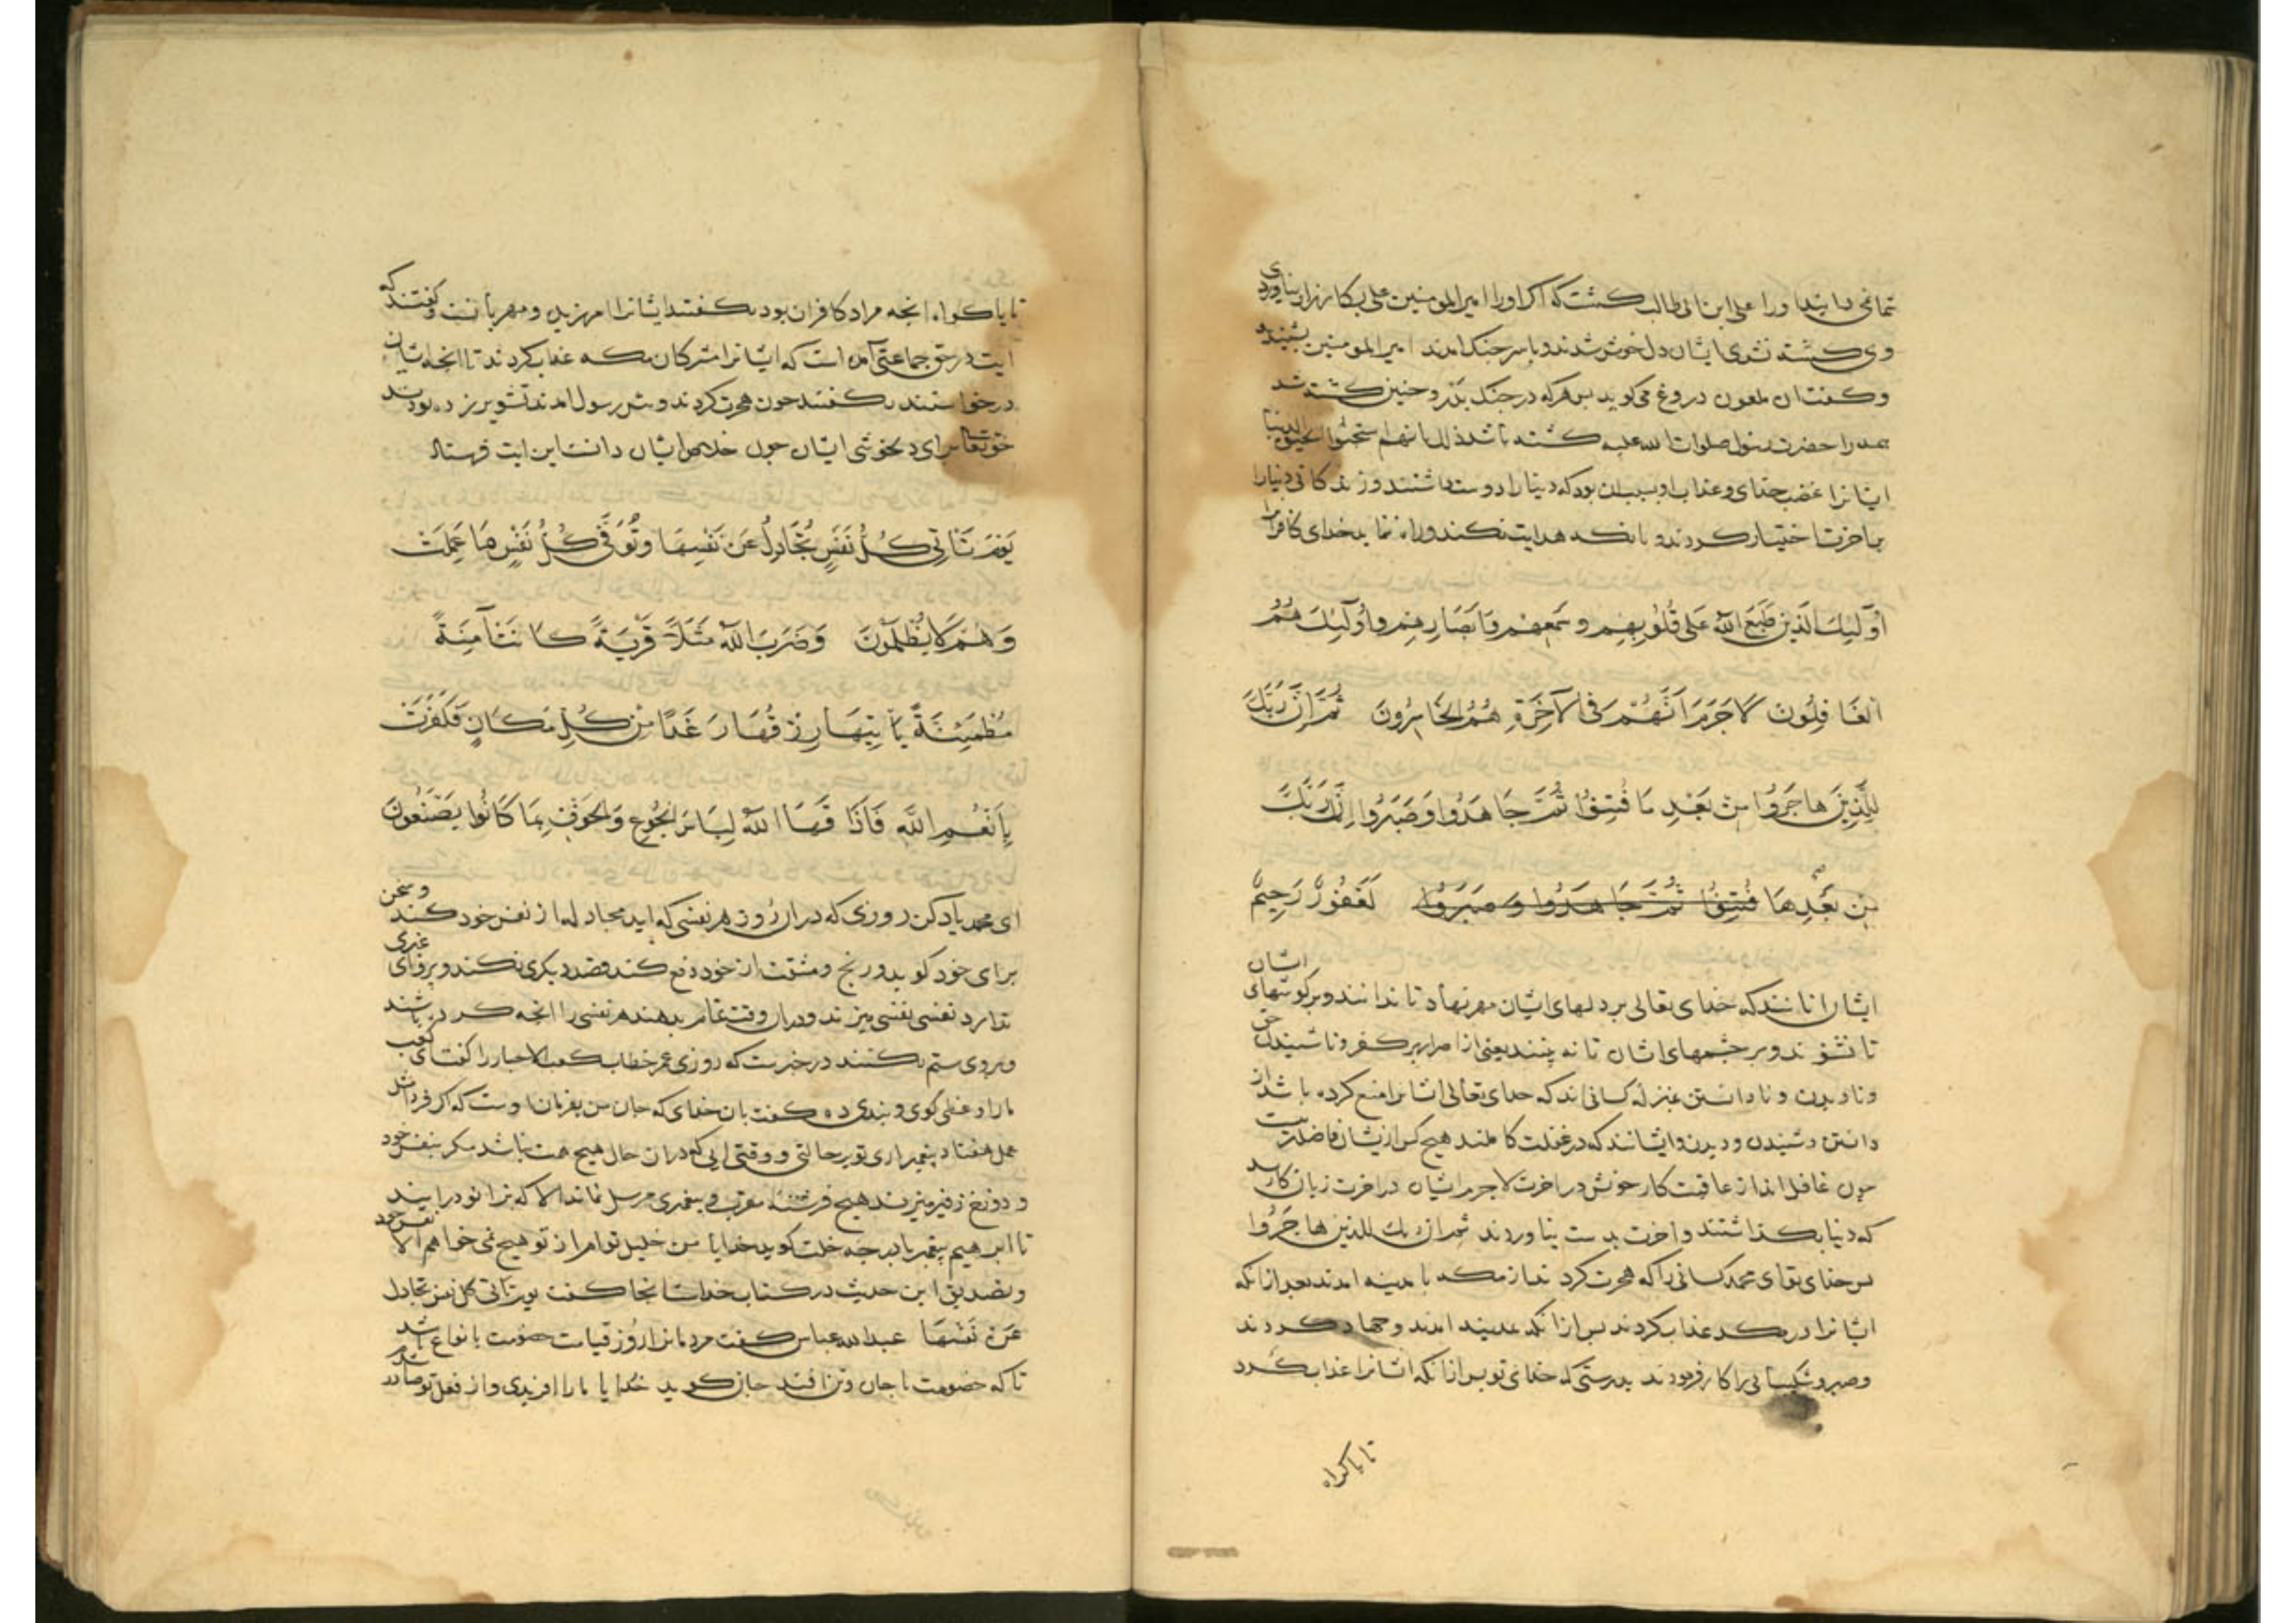 وی کشته شدی ایشان دل خوش شدند و باسر جنک امدند امیر المومنین بشنیدو
وکفت ان ملعون دروغ می کوید بس هرکه در جنک بدر و حنین کشته شد
همه را حضرت رسول صلوات الله علیه کشته باشد ذلک بانهم استحبوا الحیوة الدنیا
ایشانرا غضب خدای وعذاب او بسبب ان بود که دنیا را دوست داشتند وزندکانی دنیارا
براخرت اختیار کردند و بانکه هدایت نکند وراه ننماید خدای کافرانرا
اُولَٓئِكَ الَّذِينَ طَبَعَ اللّٰه عَلَى قُلُوبِهِم وسَمعِهِم وَاَبصَارِهِم واُولَٓئِكَ هُمُ
الغَافِلُونَ لَاجَرَمَ اَنَّهُمْ فِى الآخِرَةِ هُمُ الخَاسِرُونَ ثُمَّ اِنَّ رَبَّكَ
لِلَّذِينَ هَاجَرُوا مِنْ بَعْدِ مَا فُتِنُوا ثُمَّ جَاهَدُوا وَصَبَرُوا اِنَّ رَبَّكَ
مِن بَعْدِهَا فُتِنُوا ثُمَّ جَاهَدُوا وَصَبَرُوا لَغَفُورٌ رَحِيمٌ
ایشان
ایشان انانند که خدای تعالی بر دلهای ایشان مهر نهاد تا ندانند وبر کوشهای
تا نشنوند وبر چشمهای اشان تا نه بینند یعنی از اصرار بر کفر وناشنیدن حق
ونادیدن و نادانستن بمنزله کسانی اند که خدای تعالی اشانرا منع کرده باشد از
دانستن وشنیدن و دیدن وایشانند که در غفلت کاملند هیچ کس از یشان غافلتر نیست
چون غافل اند از عاقبت کار خویش در اخرت لاجرم ایشان در اخرت زیان کارند
که دنیا بکذاشتند واخرت بدست نیاوردند ثم ان ربك للذین هاجَرُوا
بس خدای تو ای محمد کسانی را که هجرت کردند از مکه با مدینه امدند بعد از انکه
ایشانرا در مکه عذاب کردند بس از انکه بمدینه امدند وجهاد کردند
وصبر وشکیبائی را کار فرمودند بدرستی که خدای تو بس از انکه اشانرا عذاب کردند
تا باکراه
تا باکراه انچه مراد کافران بود بکفتند ایشانرا امرزید و مهربانست وکفتند که
ایت در حق جماعتی آمده است که ایشانرا مشرکان مکه عذاب کردند تا انچه ایشان
درخواستند بکفتند چون هجرت کردند وبیش رسول امدند تشویر زده بودند
حق تعالی برای دلخوشی ایشان چون خلاص ایشان دانست این ایت فرستاد
يَومَ تَاتِي كُلُّ نَفْسٍ تُجَادِلُ عَنْ نَفْسِهَا وتُوَفَّى كُلُّ نَفْسٍ مَا عَمِلَتْ
وَهُمْ لَا يُظْلَمُونَ وَضَرَبَ اللّٰه مَثَلًا قَرْيَةً كَانَتْ آمِنَةً
مُطْمَئِنَّةً يَأتِيهَا رِزْقُهَا رَغَدًا مِن كُلِّ مَكَانٍ فَكَفَرَتْ
بِاَنْعُمِ اللَّهِ فَاَذَاقَهَا اللّٰه لِبَاسَ الجُوعِ وَالخَوْفِ بِمَا كَانُوا يَصْنَعُونَ
ای محمد یاد کن روزی که دران روز هر نفسی که اید مجادله از نفس خود کند وسخن
برای خود کوید ورنج ومشقت از خود دفع کند وقصد دیکری نکند وپروای غیری
ندارد نفسی نفسی میزند ودران وقت تمام بدهند هر نفسی را انچه کرده باشند
وبروی ستم نکنند در خبرست که روزی عمر خطاب کعب الاحبار را کفت ای کعب
مارا وعظی کوی وبندی ده کفت بان خدای که جان من بفرمان اوست که اکر فردا
عمل هفتاد بیغمبر اری تو بر حالتی و وقتی ایی که دران حال هیچ همت نباشد مکر بنفس خود
و دوزخ زفیر میزند هیچ فرشته مقرب وبیغمبری مرسل نماند الا که بزانو درایند
تا ابرهیم بیغمبر بادرجه خلت کوید خدایا من خلیل توام از تو هیچ نمی خواهم الا نفس خود
وتصدیق این حدیث در کتاب خداست انجا کفت یوم تاتی کل نفس تجادل
عَنْ نَفْسِهَا عبدالله عباس کفت مردمانرا روز قیامت خصومت بانواع باشد
تا که خصومت با جان وتن افتد جان کوید خدایا مارا افریدی واز فعل تو